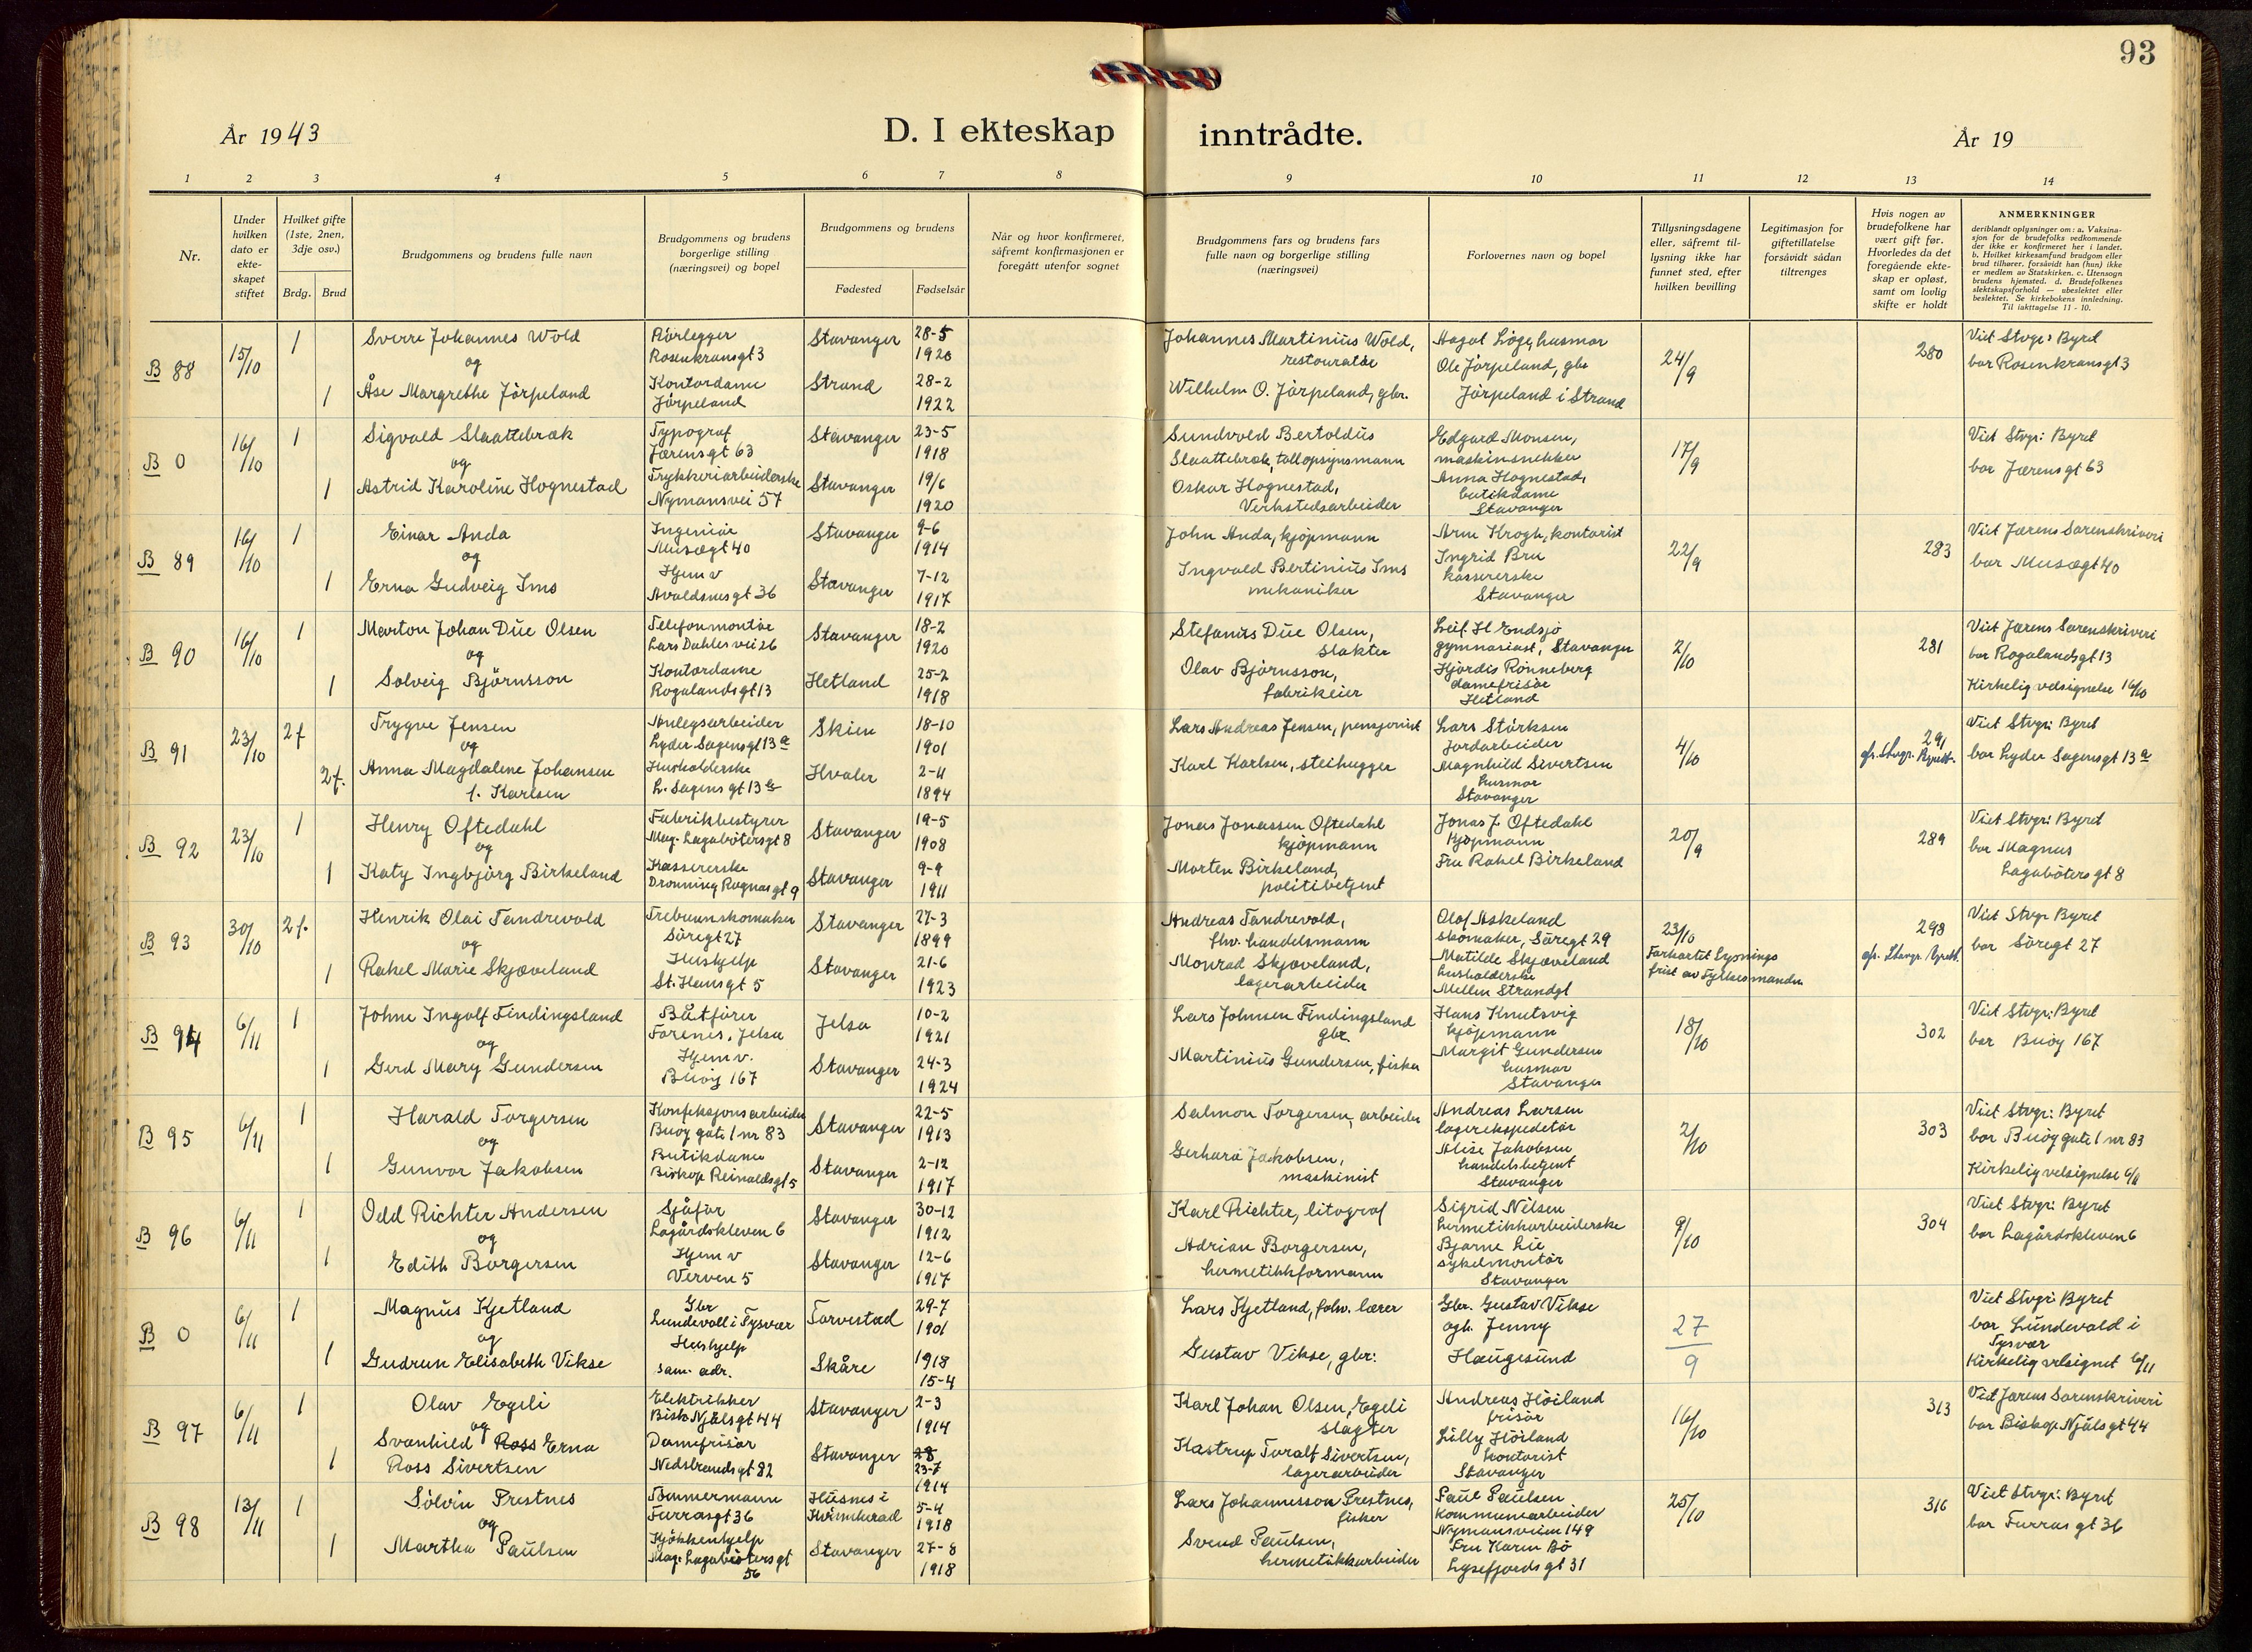 93
År 1943
D. I ekteskap inntrådte.
År 19
1 2 3 4 5 6 7 8 9 10 11 12 13 14
Nr.
Under hvilken dato er ekte-skapet stiftet
Hvilket gifte (1ste, 2nen, 3dje osv.)
Brdg. Brud
Brudgommens og brudens fulle navn
Brudgommens og brudens borgerlige stilling (næringsvei) og bopel
Brudgommens og brudens
Fødested Fødselsår
Når og hvor konfirmeret, såfremt konfirmasjonen er foregått utenfor sognet
Brudgommens fars og brudens fars fulle navn og borgerlige stilling (næringsvei)
Forlovernes navn og bopel
Tillysningsdagene eller, såfremt til-lysning ikke har funnet sted, efter hvilken bevilling
Legitimasjon for giftetillatelse forsåvidt sådan tiltrenges
Hvis nogen av brudefolkene har vært gift før. Hvorledes da det foregående ekte-skap er opløst, samt om lovlig skifte er holdt
ANMERKNINGER
deriblandt oplysninger om: a. Vaksina-
sjon for de brudefolks vedkommende
der ikke er konfirmeret her i landet.
b. Hvilket kirkesamfund brudgom eller
brud tilhører, forsåvidt han (hun) ikke
er medlem av Statskirken. c. Utensogn
brudens hjemsted. d. Brudefolkenes
slektskapsforhold — ubeslektet eller
beslektet. Se kirkebokens innledning.
Til iakttagelse 11 - 10.
B 88
15/10
1
Sverre Johannes Wold
og
1
Åse Margrethe Jörpeland
Rörlegger
Rosenkransgt 3
Kontordame
Jörpeland
Stavanger
28-5
1920
Strand
28-2
1922
Johannes Martinius Wold,
restauratör
Wilhelm O. Jörpeland, gbr.
Aagot Löge, husmor
Ole Jörpeland, gbr
Jörpeland i Strand
24/9
280
Viet Stvgr: Byret
bor Rosenkransgt 3
B 0
16/10
1
Sigvald Slaattebræk
og
1
Astrid Karoline Hognestad
Typograf
Jærensgt 63
Trykkeriarbeiderske
Nymansvei 57
Stavanger
23-5
1918
Stavanger
19/6
1920
Sundvold Bertoldus
Slaattebræk, tollopsynsmann
Oskar Hognestad,
Verkstedsarbeider
Edgard Monsen,
maskinsnekker
Anna Hognestad,
butikdame
Stavanger
17/9
Viet Stvgr: Byret
bor Jærensgt 63
B 89
16/10
1
Einar Anda
og
1
Erna Gudveig Ims
Ingeniör
Musægt 40
Hjem v
Avaldsnesgt 36
Stavanger
9-6
1914
Stavanger
7-12
1917
John Anda, kjöpmann
Ingvald Bertinius Ims
mekaniker
Arne Krogh, kontorist
Ingrid Bru
kassererske
Stavanger
22/9
283
Viet Jærens Sorenskriveri
bor Musægt 40
B 90
16/10
1
Marton Johan Due Olsen
og
1
Solveig Björnsson
Telefonmontör
Lars Dahlesvei 26
Kontordame
Rogalandsgt 13
Stavanger
18-2
1920
Hetland
25-2
1918
Stefanus Due Olsen,
slakter
Olav Björnsson,
fabrikeier
Leif H Endsjö
gymnasiast, Stavanger
Hjördis Rönneberg
damefrisör
Hetland
2/10
281
Viet Jærens Sorenskriveri
bor Rogalandsgt 13
Kirkelig velsignelse 16/10
B 91
23/10
2 f
Trygve Jensen
og
2 f.
Anna Magdalene Johansen
f. Karlsen
Anlegsarbeider
Lyder Sagensgt 13 a
Husholderske
L. Sagens gt 13 a
Skien
18-10
1901
Hvaler
2-11
1894
Lars Andreas Jensen, pensjonist
Karl Karlsen, steihugger
Lars Störksen
jordarbeider
Magnhild Sivertsen
husmor
Stavanger
4/10
291
gfr. Stvgr. Byrett.
Viet Stvgr: Byret
bor Lyder Sagensgt 13 a
B 92
23/10
1
Henry Oftedahl
og
1
Katy Ingbjörg Birkeland
Fabrikbestyrer
Mag. Lagabötersgt 8
Kassererske
Dronning Ragnasgt 9
Stavanger
19-5
1908
Stavanger
9-9
1911
Jonas Jonassen Oftedahl
kjöpmann
Morten Birkeland,
politibetjent
Jonas J. Oftedahl
Kjöpmann
Fru Rakel Birkeland
20/9
289
Viet Stvgr: Byret
bor Magnus
Lagaböters gt 8
B 93
30/10
2 f.
Henrik Olai Tandrevold
og
1
Rakel Marie Skjæveland
Trebunnskomaker
Söregt 27
Hushjelp
St. Hansgt 5
Stavanger
27-3
1899
Stavanger
21-6
1923
Andreas Tandrevold,
fhv. handelsmann
Monrad Skjæveland,
lagerarbeider
Olaf Askeland
skomaker, Söregt 29
Matilde Skjæveland
husholderske
Mellem Strandgt
23/10
Forkortet lysnings
frist av Fylkesmanden
298
gfr. Stavgr. Byrett.
Viet Stvgr Byret
bor Söregt 27
B 94
6/11
1
Johne Ingolf Findingsland
og
1
Gerd Mary Gundersen
Båtförer
Forenes, Jelsa
Hjem v.
Buöy 167
Jelsa
10-2
1921
Stavanger
24-3
1924
Lars Johnsen Findingsland
gbr.
Martinius Gundersen, fisker
Hans Knutsvig
kjöpmann
Margit Gundersen
husmor
Stavanger
18/10
302
Viet Stvgr: Byret
bor Buöy 167
B 95
6/11
1
Harald Torgersen
og
1
Gunvor Jakobsen
Konfeksjonsarbeider
Buöy gate 1 nr 83
Butikdame
Biskop Reinaldsgt 5
Stavanger
22-5
1913
Stavanger
2-12
1917
Salmon Torgersen, arbeider
Gerhard Jakobsen,
maskinist
Andreas Larsen
lagerekspeditör
Alise Jakobsen
handelsbetjent
Stavanger
2/10
303
Viet Stvgr: Byret
bor Buöy gate 1 nr 83
Kirkelig velsignelse 6/11
B 96
6/11
1
Odd Richter Andersen
og
1
Edith Borgersen
Sjåför
Lagårdskleven 6
Hjem v
Verven 5
Stavanger
30-12
1912
Stavanger
12-6
1917
Karl Richter, litograf
Adrian Borgersen,
hermetikkformann
Sigrid Nilsen
hermetikkarbeiderske
Bjarne Lie
sykelmontör
Stavanger
9/10
304
Viet Stvgr: Byret
bor Lagårdskleven 6
B 0
6/11
1
Magnus Kjetland
og
1
Gudrun Elisabeth Vikse
Gbr
Lundevoll i Tysvær
Hushjelp
sam. adr.
Torvestad
29-7
1901
Skåre
1918
15-4
Lars Kjetland, fohv. lærer
Gustav Vikse, gbr:
Gbr. Gustav Vikse
ogh. Jenny
Haugesund
27/9
Viet Stvgr: Byret
bor Lundevold i
Tysvær
Kirkelig velsignet 6/11
B 97
6/11
1
Olav Egeli
og
1
Svanhild Ross Erna
Ross Sivertsen
Elektrikker
Bisk Njålsgt 44
Damefrisör
Nedstrandsgt 82
Stavanger
2-3
1914
Stavanger
28
23-7
1914
Karl Johan Olsen, Egeli
slagter
Kastrup Toralf Sivertsen,
lagerarbeider
Andreas Höiland
frisör
Lilly Höiland
kontorist
Stavanger
16/10
313
Viet Jærens Sorenskriveri
bor Biskop Njålsgt 44
B 98
13/11
1
Sölvin Prestnes
og
1
Martha Paulsen
Tömmermann
Furrasgt 36
Kjökkenhjelp
Mag. Lagabötersgt
56
Husnes i
Kvinnherad
5-4
1918
Stavanger
27-8
1918
Lars Johannesson Prestnes,
fisker
Svend Paulsen,
hermetikkarbeider
Paul Paulsen
kommunearbeider
Nymansveien 149
Fru Karen Bö
Lysefjordsgt 31
25/10
316
Viet Stvgr: Byret
bor Furras gt 36